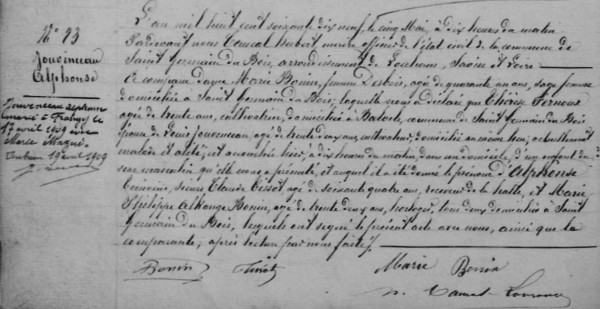 N° 23
Jouvenceau
Alphonse
marié à
17 avril 1909 avec
Marie
19 avril 1909
L'an mil huit cent soixante dix neuf, le cinq Mai, à dix heures du matin
Pardevant nous maire officier de l'état civil de la commune de
Saint Germain du Bois, arrondissement de Louhans, Saône et Loire
A comparu dame Marie Bonin, femme agée de quarante ans, sage femme
domiciliée à Saint Germain du Bois, laquelle nous a déclaré que
agée de trente ans, cultivatrice, domiciliée à commune de Saint Germain du Bois
épouse de Louis Jouvenceau, agé de trente deux ans, cultivateur, domicilié au même lieu, actuellement
malade et alité, est accouchée hier, à dix heures du matin, dans son domicile, d'un enfant du
sexe masculin qu'elle nous a présenté, et auquel il a été donné le prénom d'Alphonse
Témoins, sieurs Claude agé de soixante quatre ans, receveur de la halle, et Marie
Philippe Bonin, agé de trente deux ans, horloger, tous deux domiciliés à Saint
Germain du Bois, lesquels ont signé le présent acte avec nous, ainsi que la
comparante, après lecture par nous faite.
Bonin Marie Bonin